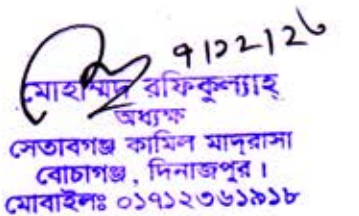 ৭।১২।২৬
মোহাম্মদ রফিকুল্যাহ্
অধ্যক্ষ
সেতাবগঞ্জ কামিল মাদ্‌রাসা
বোচাগঞ্জ, দিনাজপুর।
মোবাইলঃ ০১৭১২৩৬১৯১৮